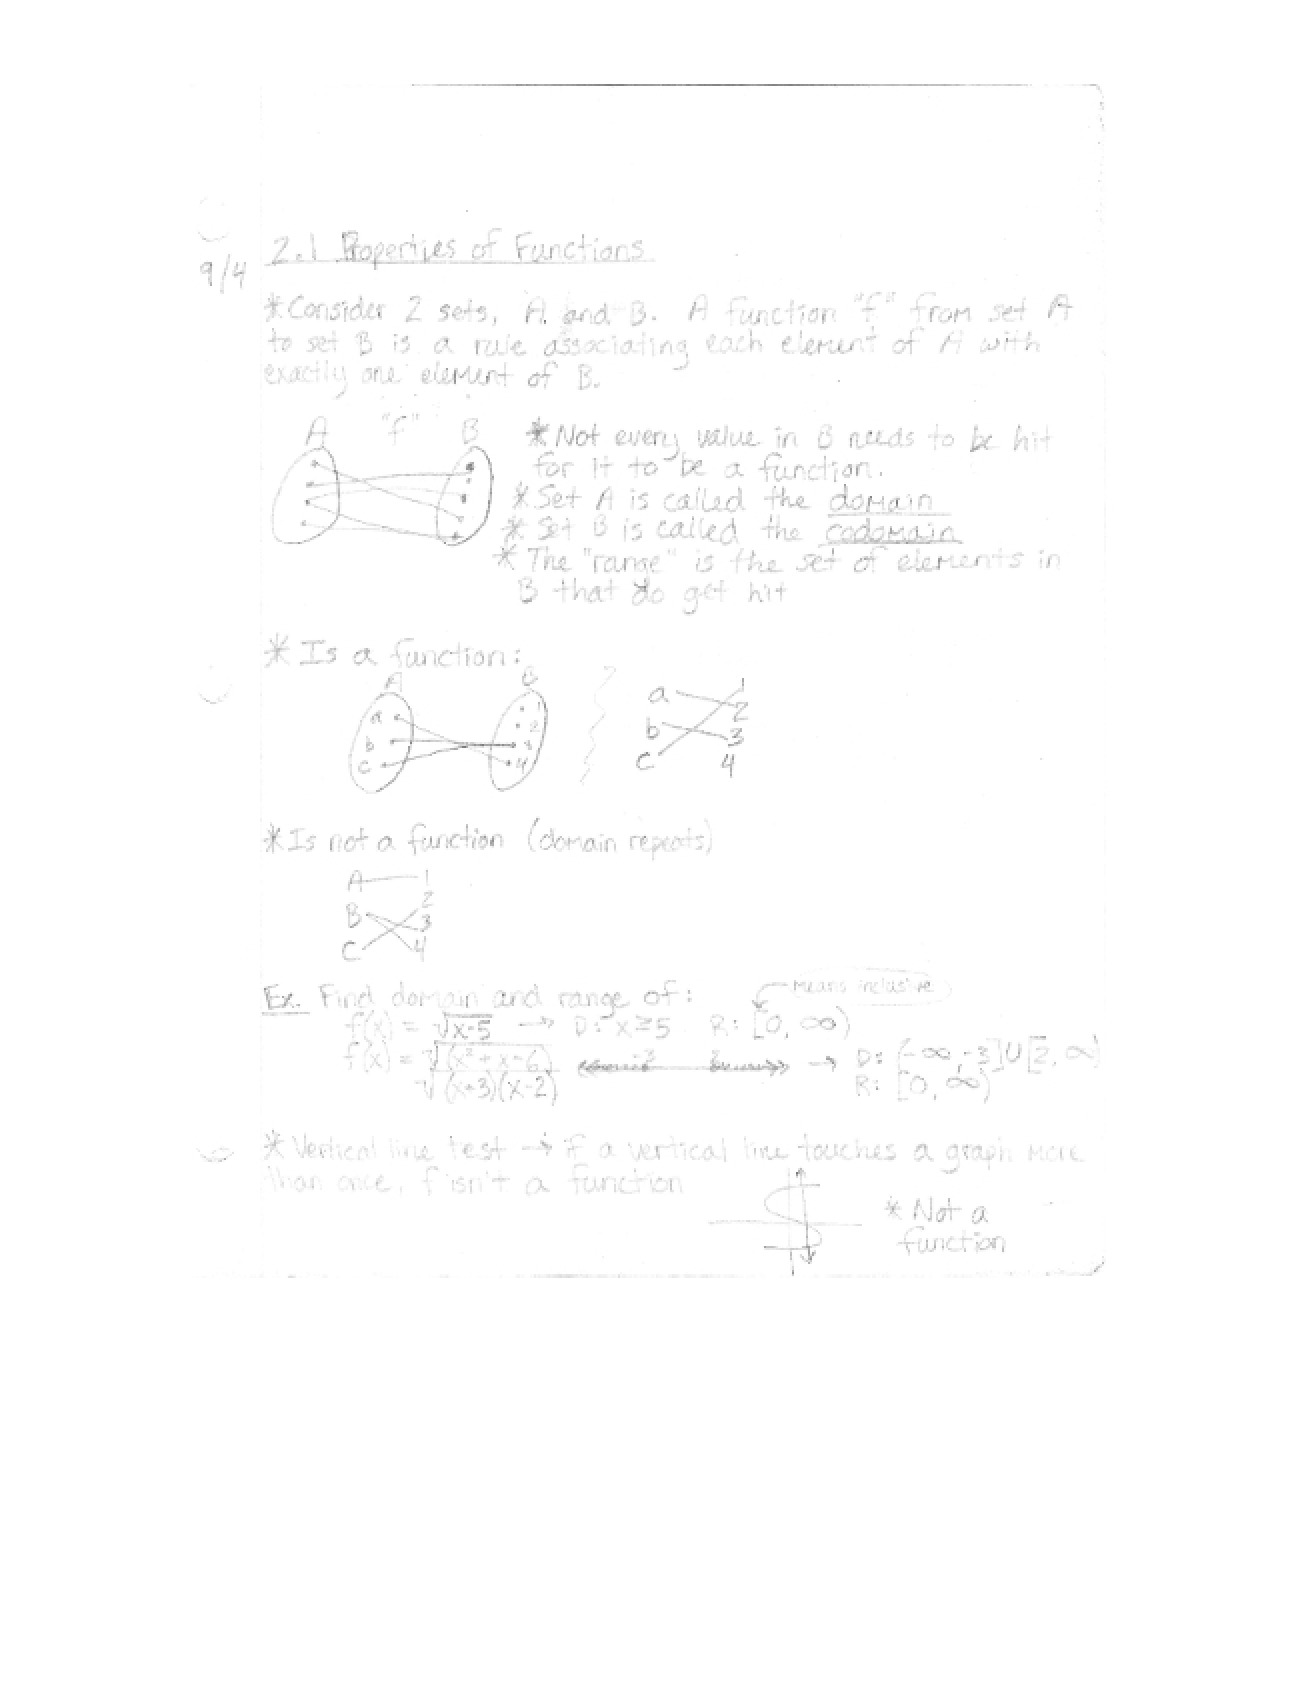 2.1 Properties of Functions
9/4
*Consider 2 sets, A and B. A function "f" from set A
to set B is a rule associating each element of A with
exactly one element of B.
A "f" B
*Not every value in B needs to be hit
for it to be a function.
*Set A is called the domain
*Set B is called the codomain
*The "range" is the set of elements in
B that do get hit
*Is a function:
A B
a 1
b 2
c 3
4
a 1
b 2
c 3
4
*Is not a function (domain repeats)
A 1
B 2
C 3
4
Ex. Find domain and range of:
means inclusive
f(x) = √x-5 → D: x≥5 R: [0, ∞)
f(x) = √(x²+x-6) -3 2 → D: (-∞, -3]U[2, ∞)
√(x+3)(x-2) R: [0, ∞)
*Vertical line test → if a vertical line touches a graph more
than once, f isn't a function
*Not a
function